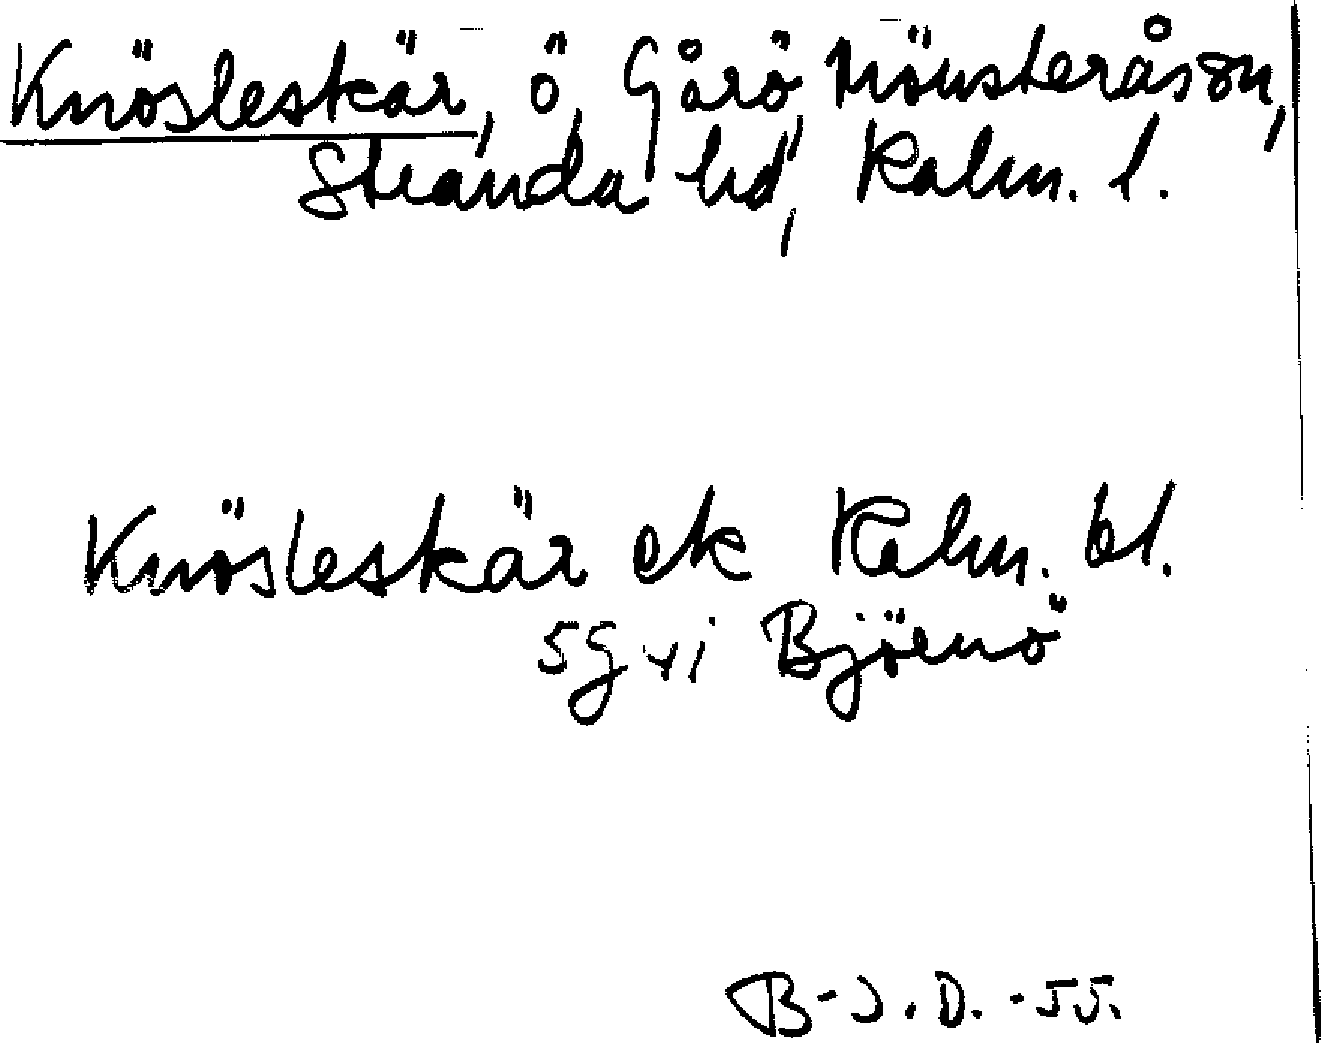 Knösleskär, ö, Gårö, Mönsterås sn,
Stranda hd, Kalm. l.
Knösleskär ek Kalm. bl.
5g vi Björnö
B-J.D. -55.